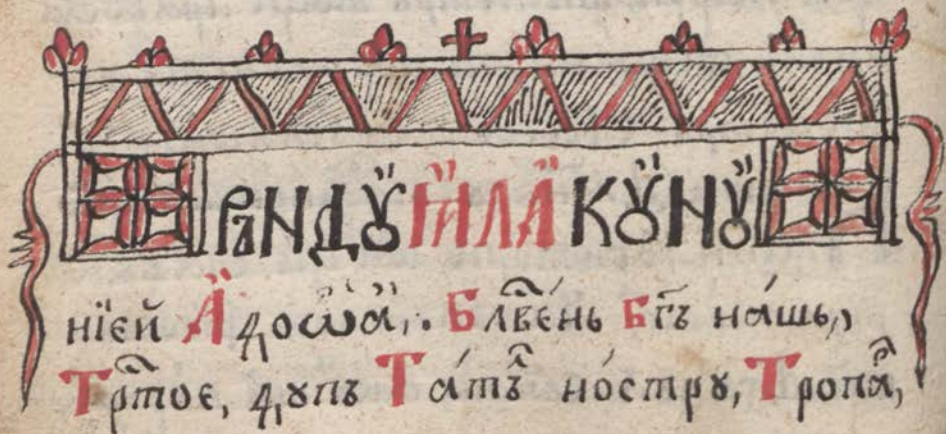 РЪНДꙊꙖЛАКꙊНꙊ
нїєй Адоѡа,. Блвень Бгъ нашь,
Трⷭ҇тоє, дꙋпъ Татъ ностру, Тропа,